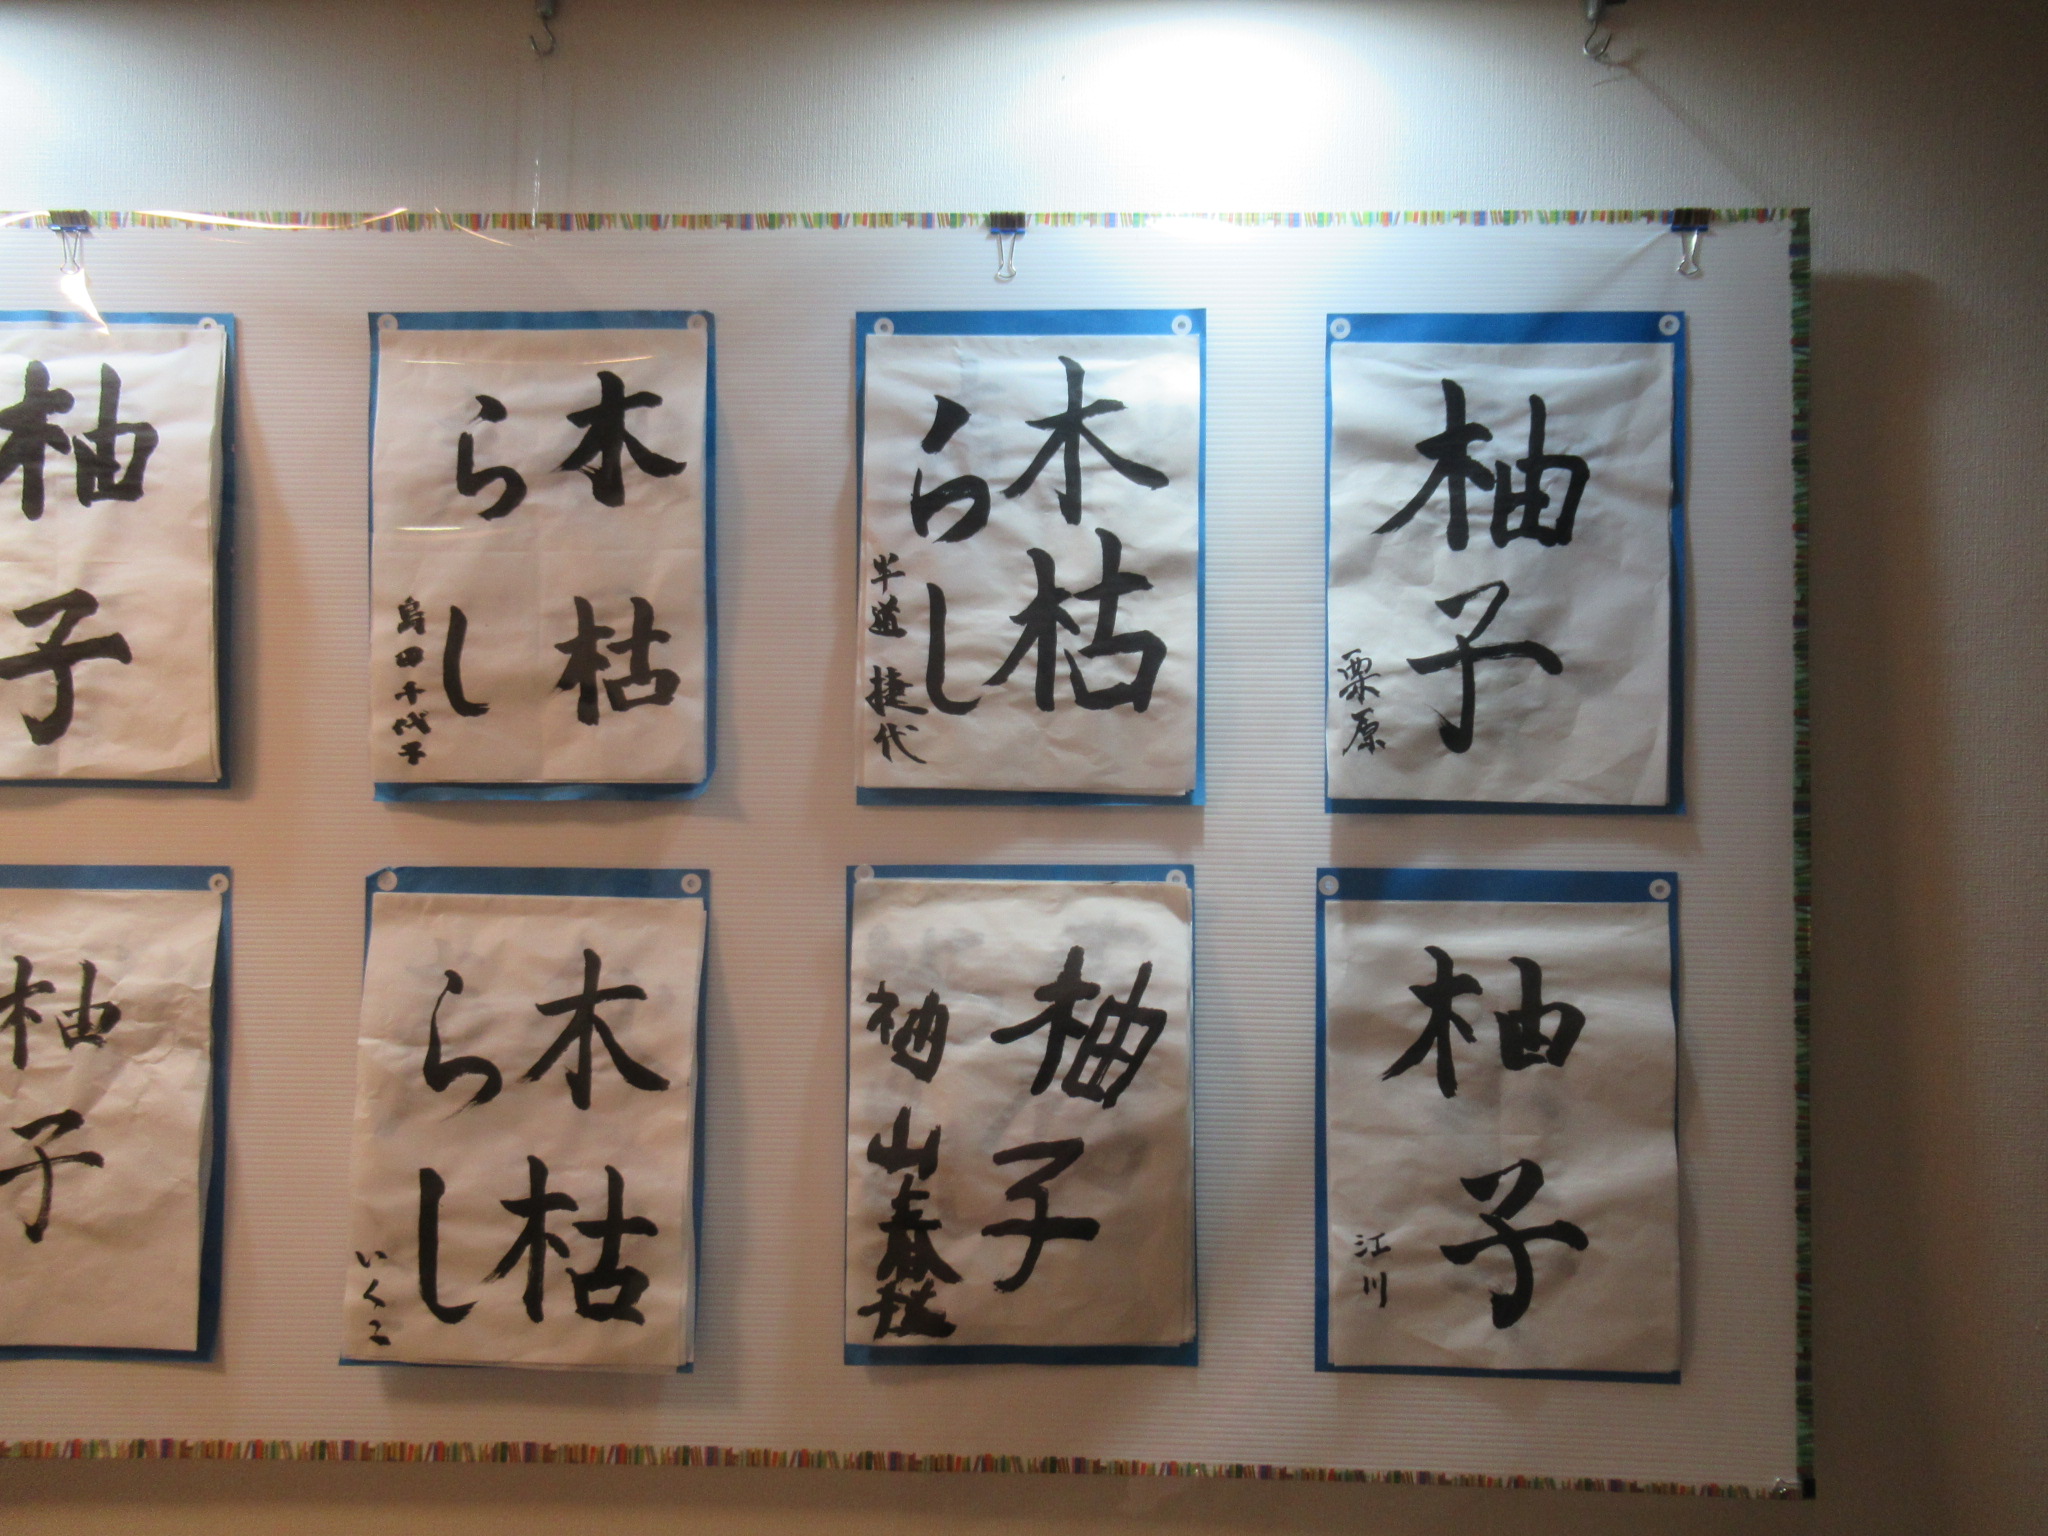 柚子
栗原
木枯
らし
半道 捷代
木枯
らし
島田千代子
柚子
柚子
江川
柚子
袖山
木枯
らし
いくこ
柚子